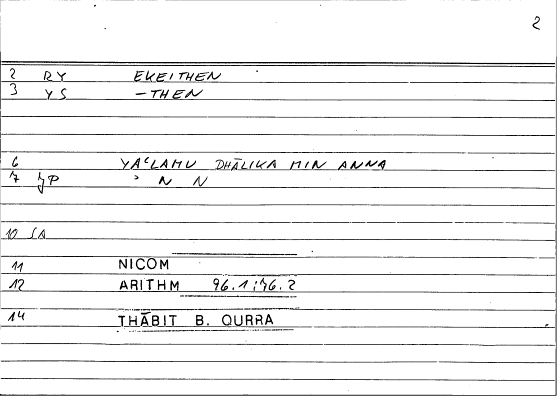 2
2 RY EKEITHEN
3 YS -THEN
6 YAʿLAMU DHĀLIKA MIN ANNA
7 JP ʾ N N
10 SA
11 NICOM
12 ARITHM 96.1;46.2
14 THĀBIT B. QURRA